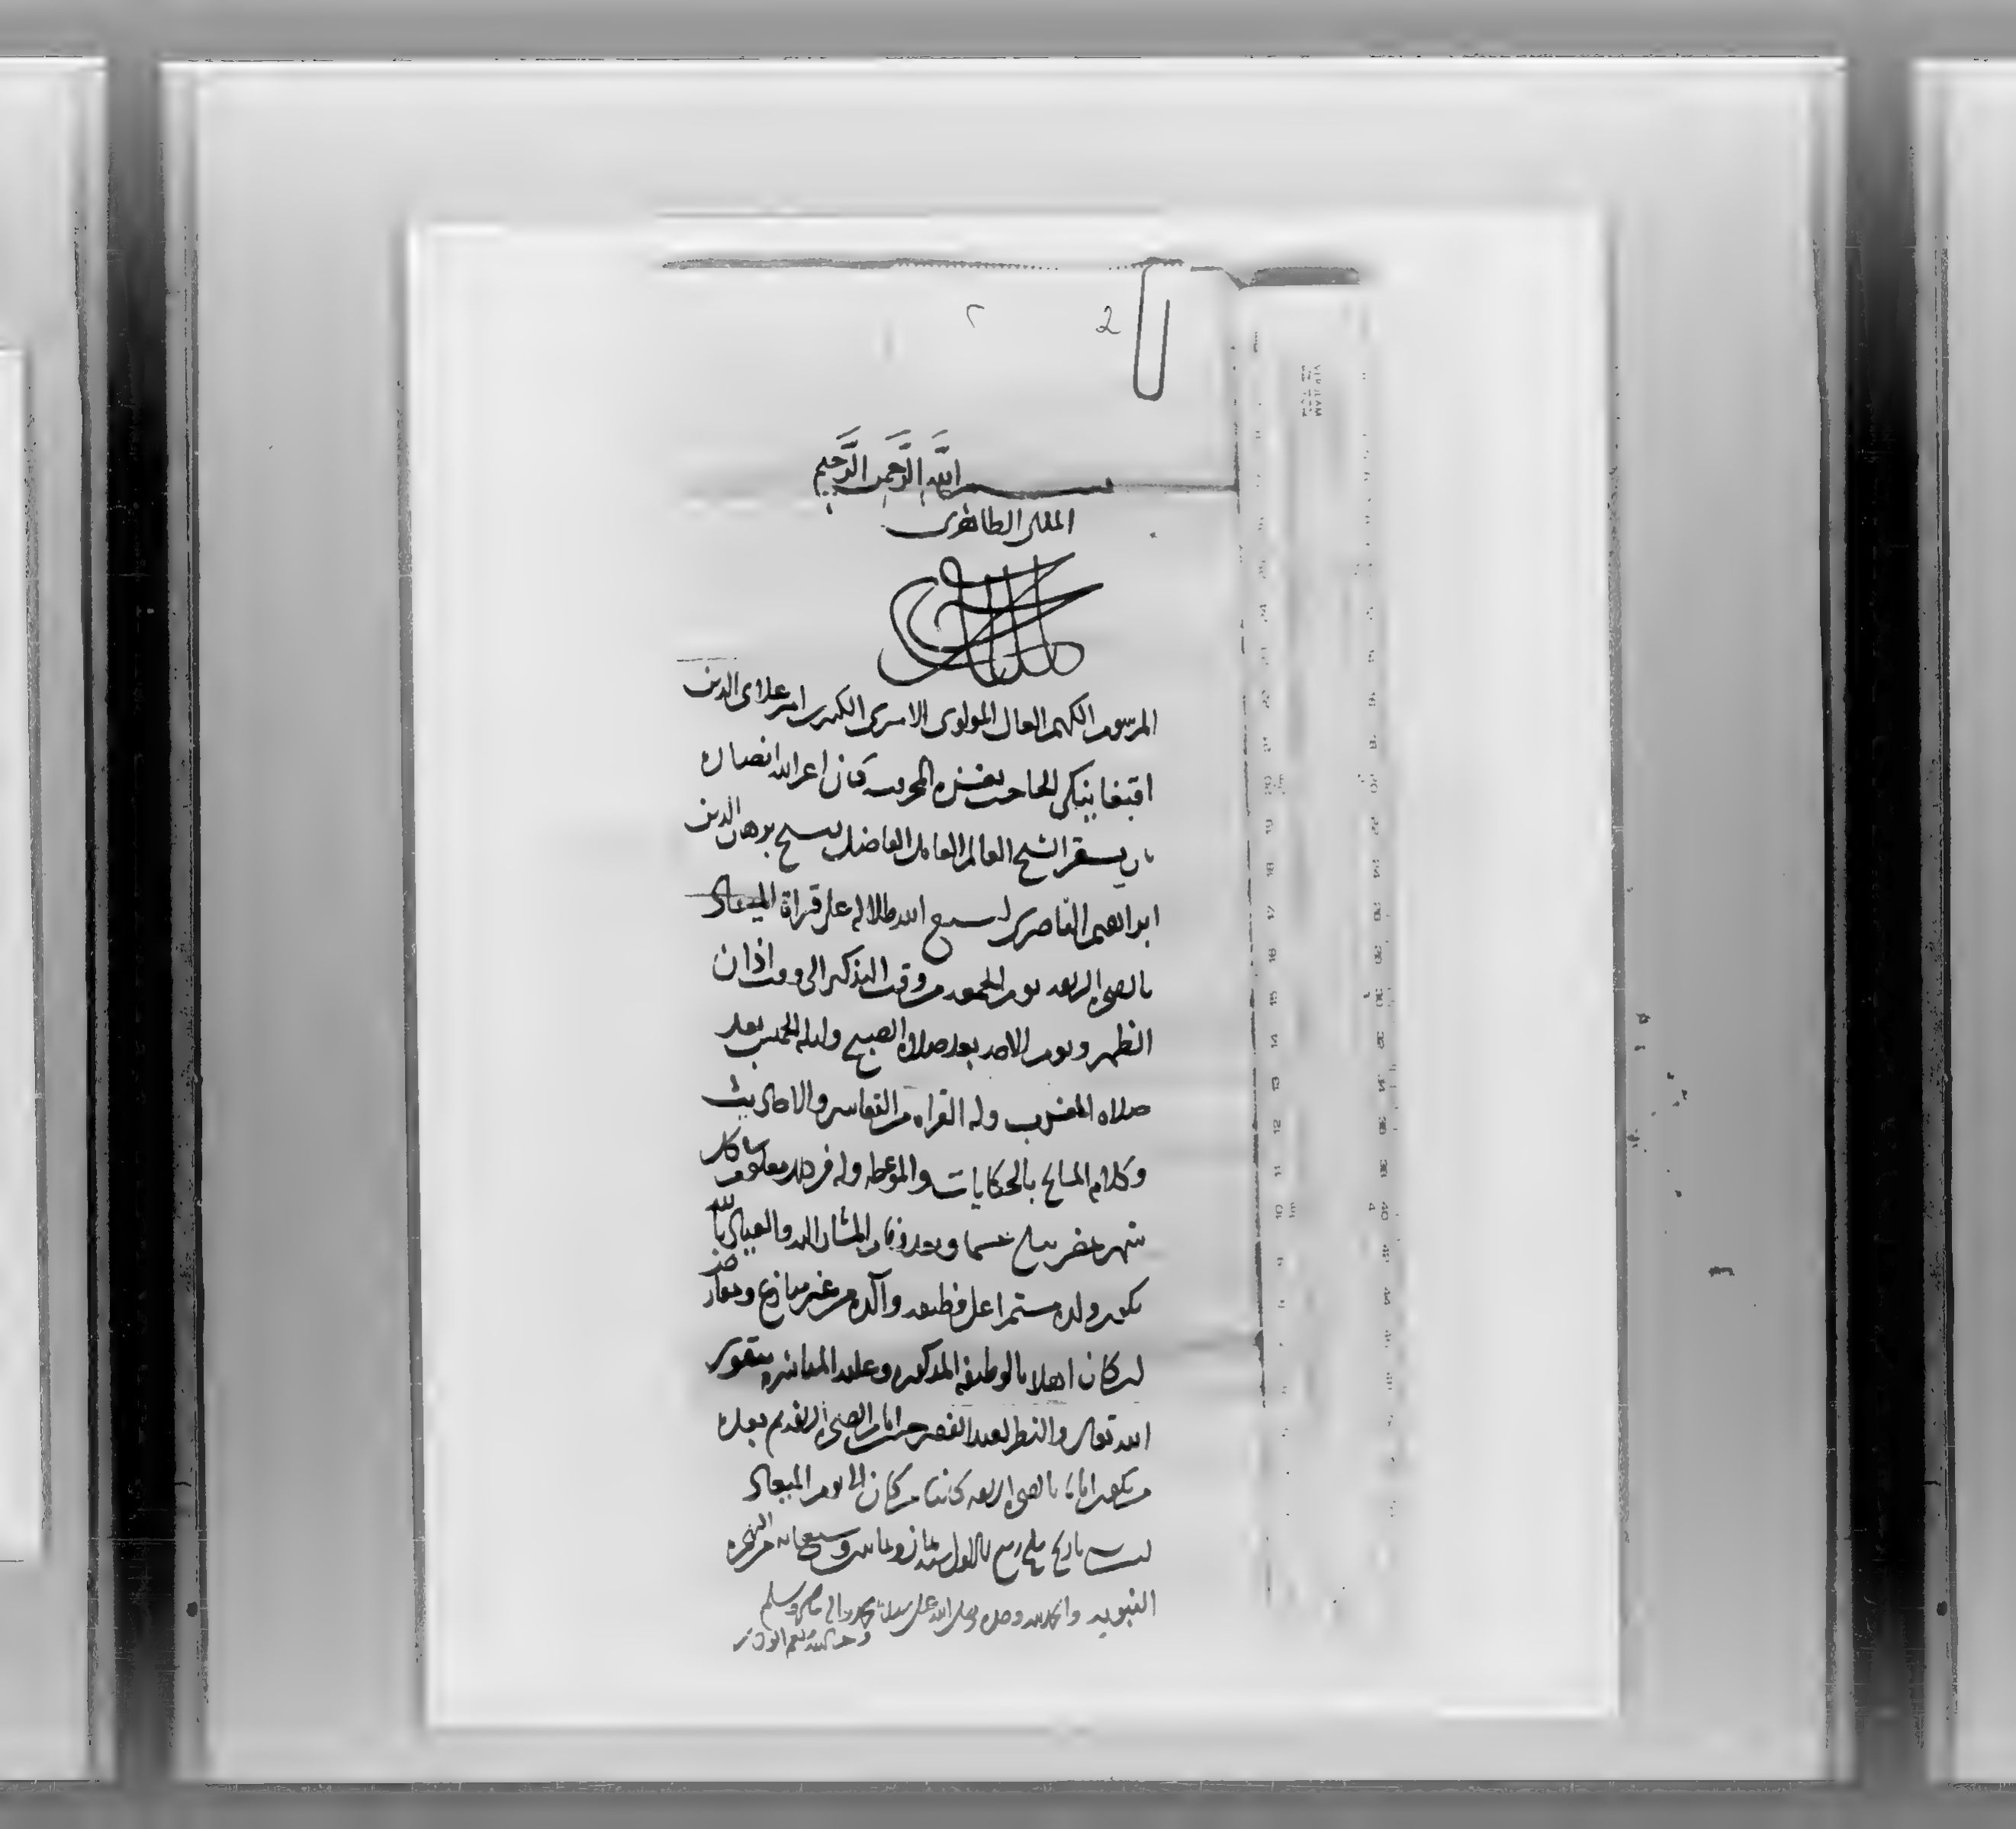 2
٢
بسم الله الرحمن الرحيم
الملكى الظاهرى
المرسوم الكريم العالى المولوى الاميرى الكبيرى امير علاى الدين
اقبغا ينكى الحاجب بغزه المحروسه كان اعز الله انصاره
بان يستقر الشيخ العالم العامل الفاضل الشيخ برهان الدين
ابراهيم الناصرى اسبغ الله ظلاله على قراة الميعاد
بالصخره الشريفه يوم الجمعه من وقت التذكير الى وقت اذان
الظهر ويوم الاحد بعد صلاة الصبح وليله الخميس بعد
صلاه المغرب وله القراه من التفاسير والاحاديث
وكلام المشايخ بالحكايات والموعظه وله فى معلوم كل
شهر مبلغ وبعد وفاة المشار اليه والعياذ بالله
يكون ولده مستمرا على وظيفه والده من غير منازع
ان كان اهلا بالوظيفه المذكوره وعليه المباشره بتقوى
الله تعالى والنظر للعبد الفقير
من يكون اماما بالصخره الشريفه كائنا من كان الى يوم الميعاد
كتب بتاريخ ربيع الاول سنه ثمان وثمانين وسبعمايه من الهجره
النبويه والحمد لله وحده وصلى الله على سيدنا محمد واله وصحبه وسلم
وحسبنا الله ونعم الوكيل